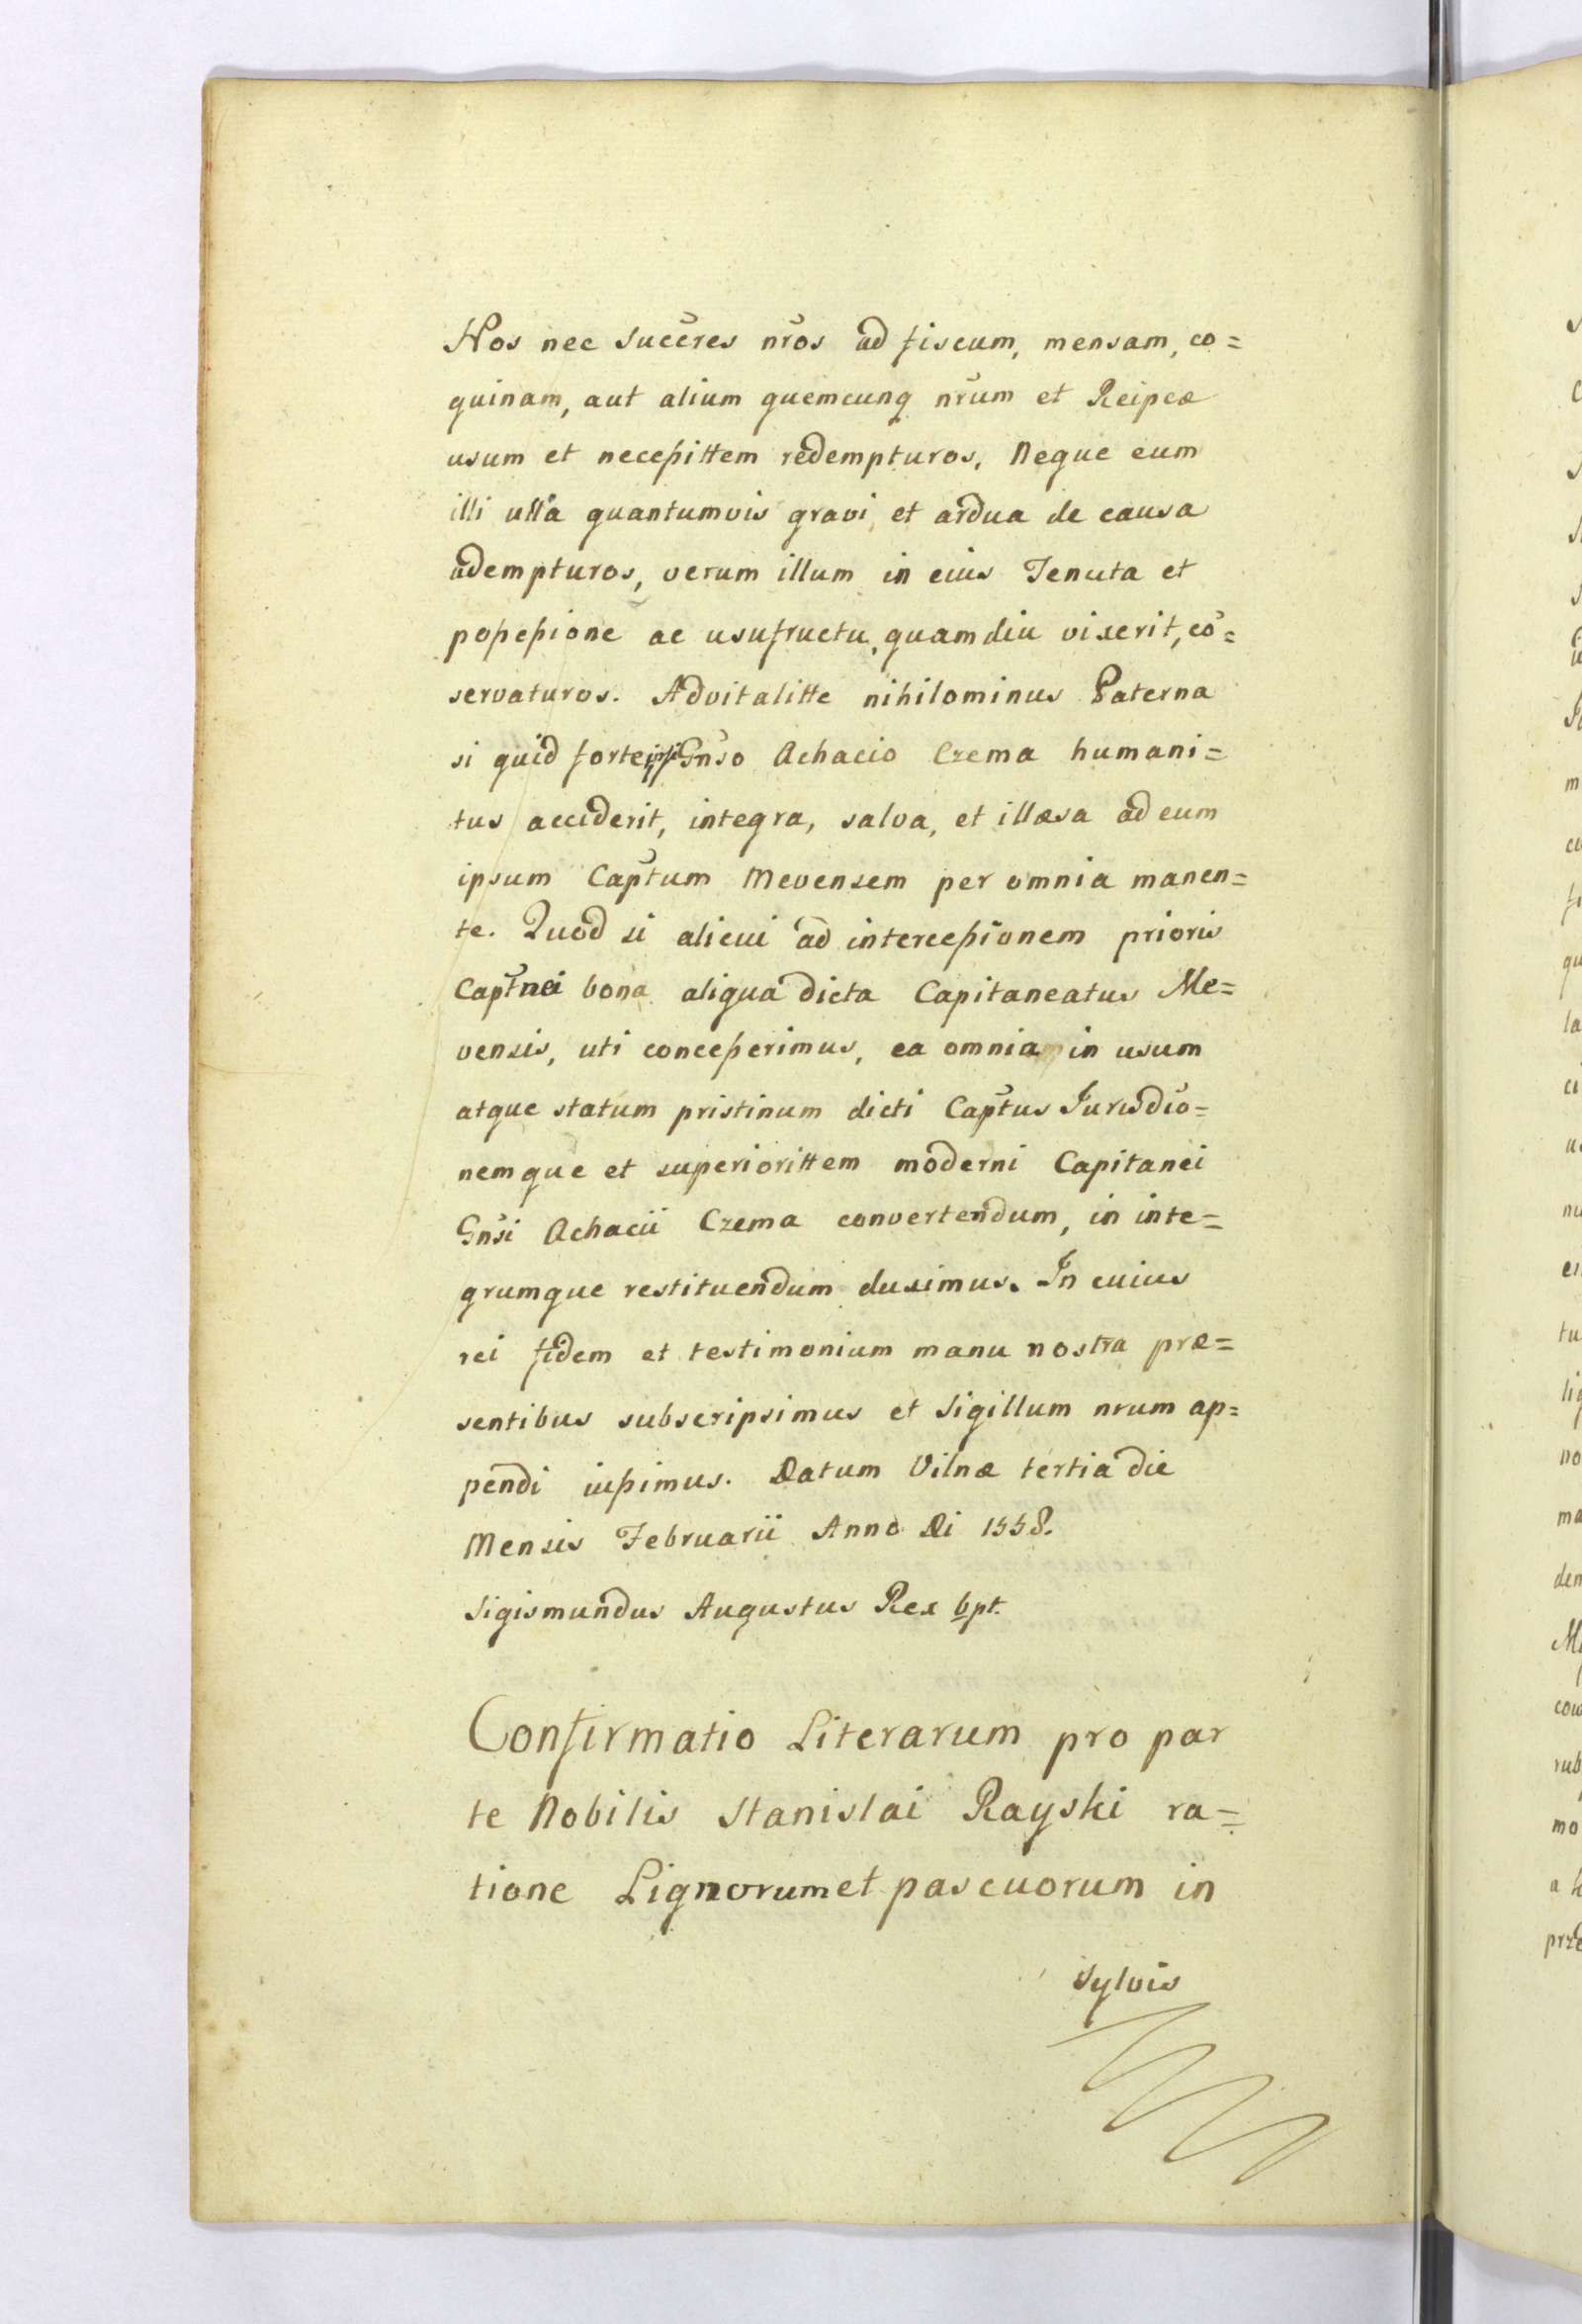 Nos nec Succ̄res nr̄os ad fiscum, mensam, co=
quinam, aut alium quemcunq nr̄um et Reipcæ
usum et necessittem redempturos, Neque eum
illi ulla quantumvis gravi et ardua de causa
adempturos, verum illum in eius Tenuta et
possessione ac usufructu, quamdiu vixerit, cō=
servaturos. Advitalitte nihilominus Paterna
si quid forte ipsi Gn̄so Achacio Czema humani=
tus acciderit, integra, salva, et illæsa ad eum
ipsum Capt̄um Mevensem per omnia manen=
te. Quod si alicui ad intercessionem prioris
Capt̄nei bona aliqua dicta Capitaneatus Me=
vensis, uti concesserimus, ea omnia in usum
atque statum pristinum dicti Capt̄us Jurisdio=
nemque et superiorittem moderni Capitanei
Gn̄si Achacii Czema convertendum, in inte=
grumque restituendum duximus. In cuius
rei fidem et testimonium manu nostra præ=
sentibus subscripsimus et Sigillum nrum ap=
pendi iussimus. Datum Vilnæ tertia die
Mensis Februarii Anno Di 1558.
Sigismundus Augustus Rex spt.
Confirmatio Literarum pro par
te Nobilis Stanislai Rayski ra=
tione Lignorum et pascuorum in
Sylvis